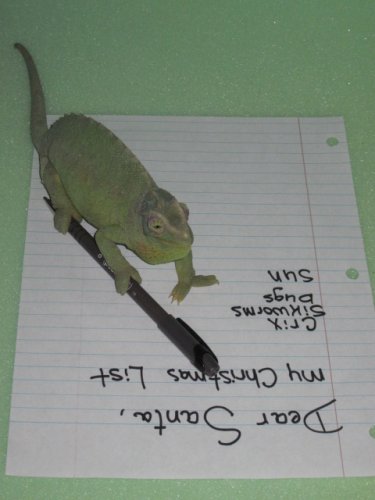 Dear Santa,
my Christmas List
Crix
Silkworms
Bugs
Sun